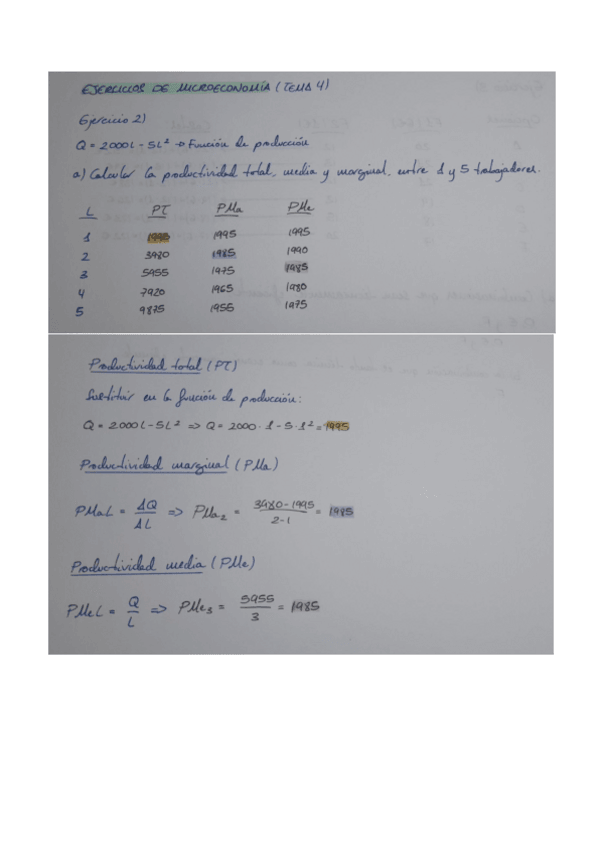 EJERCICIOS DE MICROECONOMÍA (TEMA 4)
Ejercicio 2)
Q = 2000L - 5L² → Función de producción
a) Calcular la productividad total, media y marginal, entre 1 y 5 trabajadores.
L PT PMa PMe
1 1995 1995 1995
2 3980 1985 1990
3 5955 1975 1985
4 7920 1965 1980
5 9875 1955 1975
Productividad total (PT)
Sustituir en la función de producción:
Q = 2000L - 5L² => Q = 2000 · 1 - 5 · 1² = 1995
Productividad marginal (PMa)
PMaL = ΔQ/ΔL => PMa₂ = 3980-1995/2-1 = 1985
Productividad media (PMe)
PMeL = Q/L => PMe₃ = 5955/3 = 1985